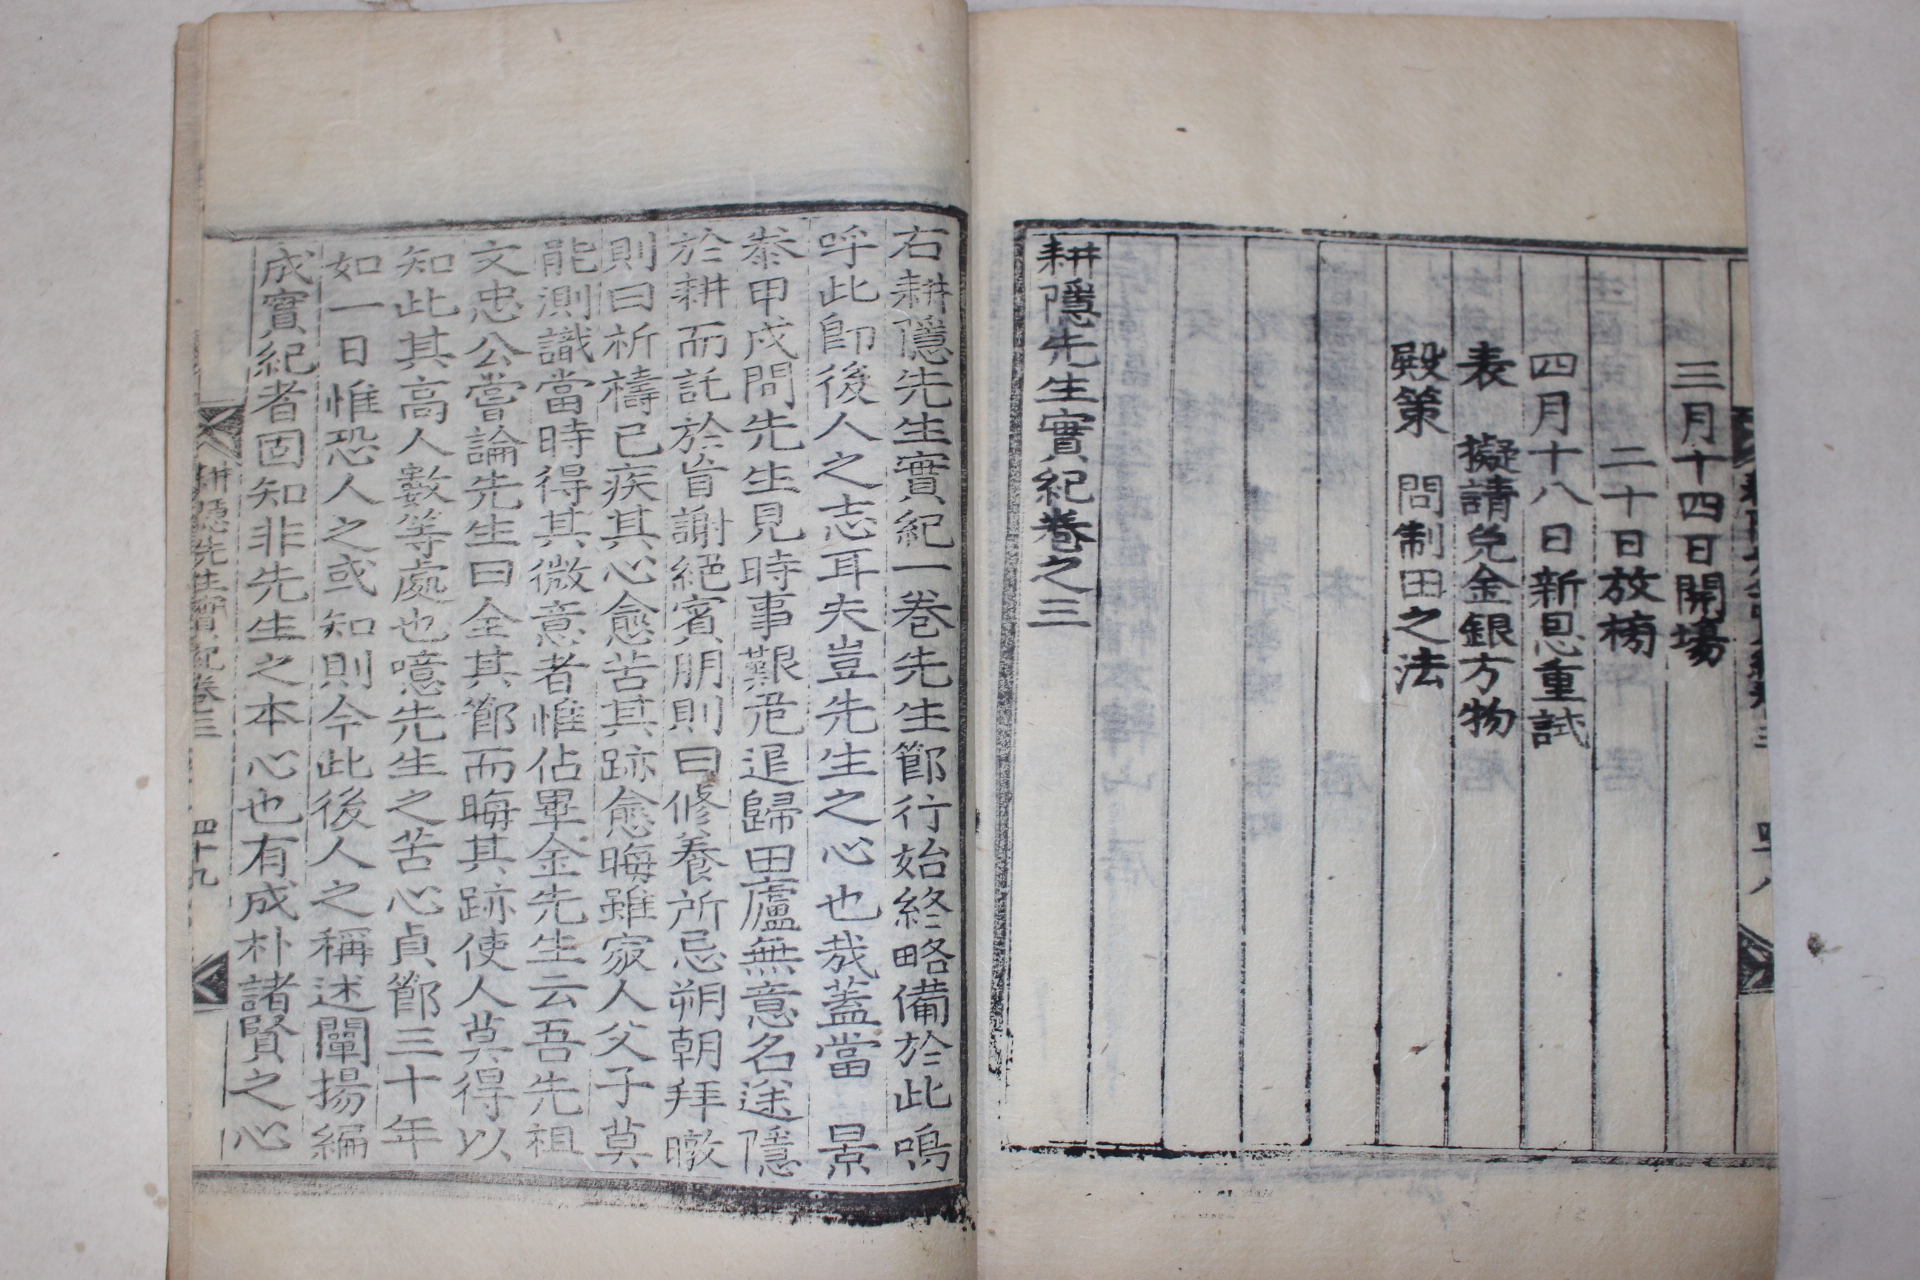 三月十四日開場
二十日放榜
四月十八日新恩重試
表 擬請免金銀方物
殿策 問制田之法
耕隱先生實紀卷之三
右耕隱先生實紀一卷先生節行始終略備於此嗚
呼此卽後人之志耳夫豈先生之心也哉蓋當 景
泰甲戌間先生見時事艱危退歸田廬無意名途隱
於耕而託於盲謝絕賓朋則曰修養所忌朔朝拜暾
則曰祈禱己疾其心愈苦其跡愈晦雖家人父子莫
能測識當時得其微意者惟佔畢金先生云吾先祖
文忠公嘗論先生曰全其節而晦其跡使人莫得以
知此其高人數等處也噫先生之苦心貞節三十年
如一日惟恐人之或知則今此後人之稱述闡揚編
成實紀者固知非先生之本心也有成朴諸賢之心
耕隱先生實紀卷三 四十九